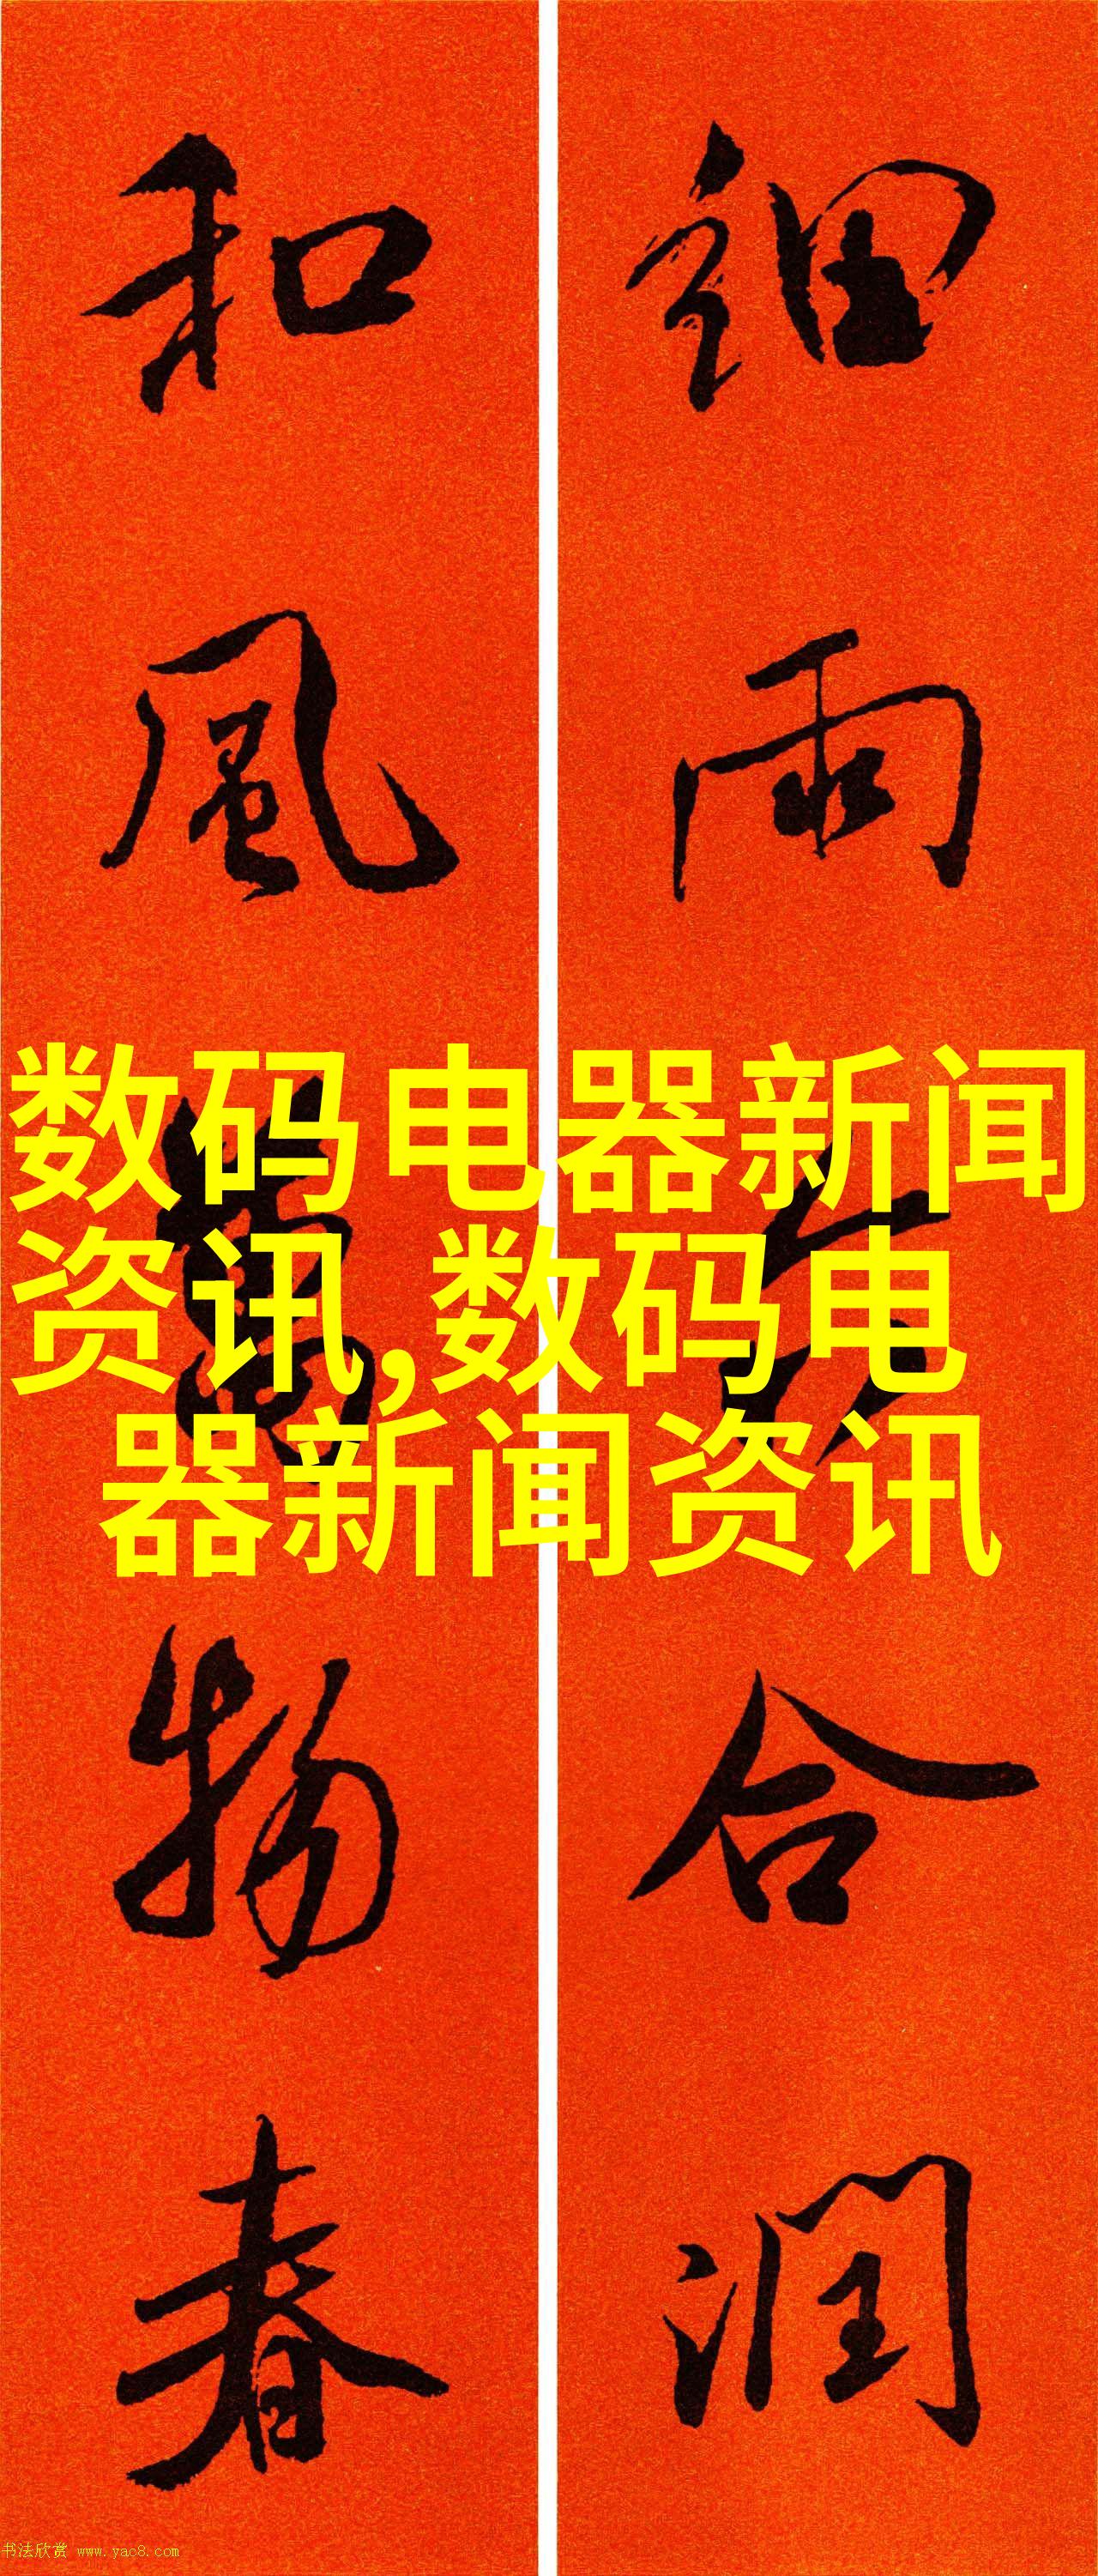 細雨
合潤
和風萬物春
数码电器新闻
资讯,数码电
器新闻资讯
书法欣赏 www.yac8.com